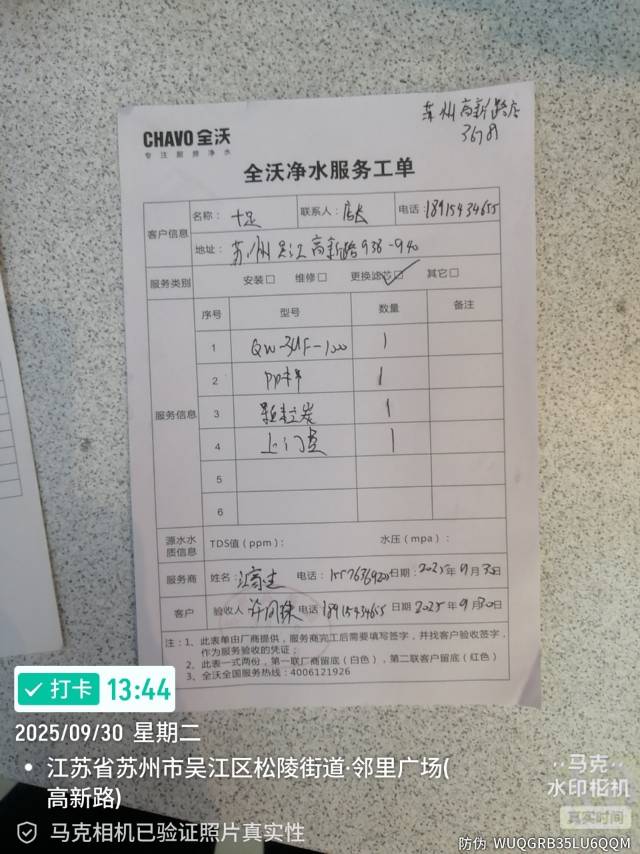 苏州高新路店
3678
CHAVO 全沃
专注厨房净水
全沃净水服务工单
客户信息 名称：十足 联系人：店长 电话：18915434655
地址：苏州吴江高新路938-940
服务类别 安装□ 维修□ 更换滤芯☑ 其它□
服务信息
序号 型号 数量 备注
1 QW-3UF-1000 1
2 PP棉 1
3 颗粒炭 1
4 上门费 1
5
6
源水水质信息 TDS值（ppm）： 水压（mpa）：
服务商 姓名： 电话： 日期：2025年9月30日
客户 验收人 许凤珠 电话 18915434655 日期 2025年9月30日
注：1、此表单由厂商提供，服务商完工后需要填写签字，并找客户验收签字，
作为服务验收的凭证；
2、此表一式两份，第一联厂商留底（白色），第二联客户留底（红色）
3、全沃全国服务热线：4006121926
打卡 13:44
2025/09/30 星期二
江苏省苏州市吴江区松陵街道·邻里广场(
高新路)
马克相机已验证照片真实性
马克
水印相机
真实时间
防伪 WUQGRB35LU6QQM